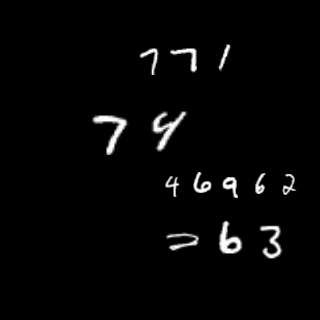 771
74
46962
=63